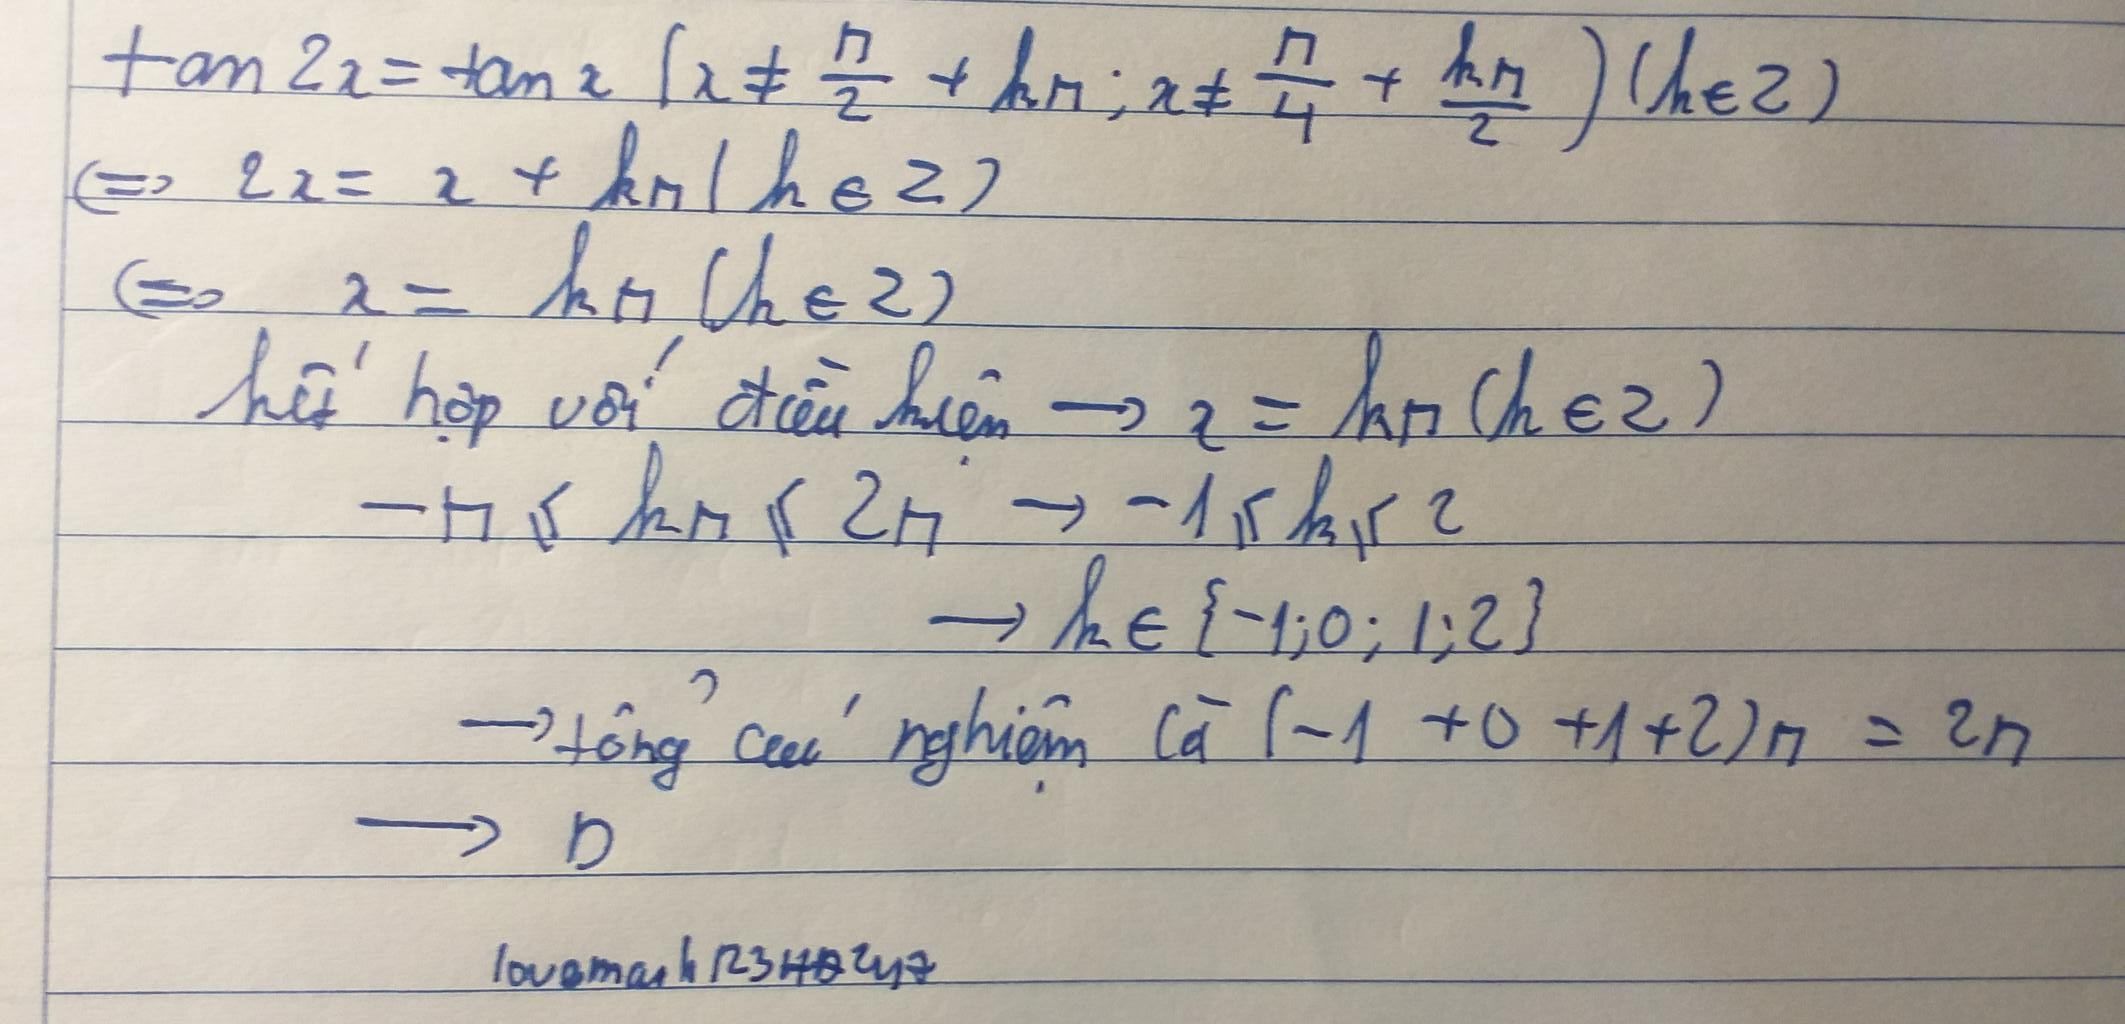 tan 2x = tan x (x ≠ π/2 + kπ; x ≠ π/4 + kπ/2) (k ∈ Z)
⇔ 2x = x + kπ (k ∈ Z)
⇔ x = kπ (k ∈ Z)
kết hợp với điều kiện → x = kπ (k ∈ Z)
-π ≤ kπ ≤ 2π → -1 ≤ k ≤ 2
→ k ∈ {-1; 0; 1; 2}
→ tổng các nghiệm là (-1 + 0 + 1 + 2)π = 2π
→ D